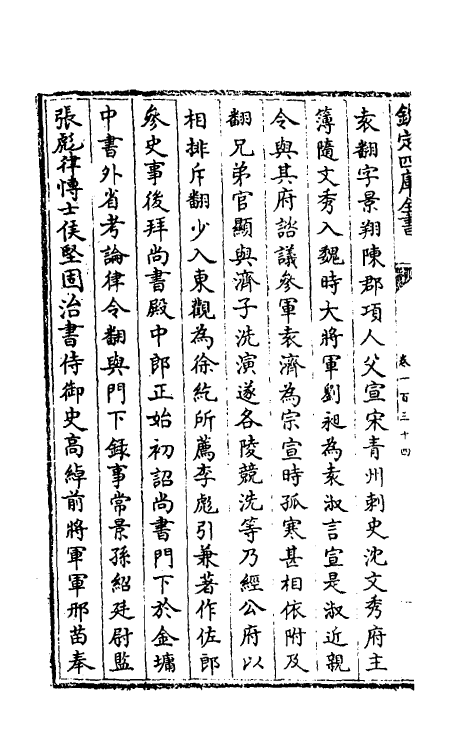 欽定四庫全書
卷一百三十四
袁翻字景翔陳郡項人父宣宋青州刺史沈文秀府主
簿隨文秀入魏時大將軍劉昶為袁淑言宣是淑近親
令與其府諮議參軍袁濟為宗宣時孤寒甚相依附及
翻兄弟官顯與濟子洗演遂各陵競洗等乃經公府以
相排斥翻少入東觀為徐紇所薦李彪引兼著作佐郎
參史事後拜尚書殿中郎正始初詔尚書門下於金墉
中書外省考論律令翻與門下録事常景孫紹廷尉監
張彪律博士侯堅固治書侍御史高綽前將軍軍邢苗奉